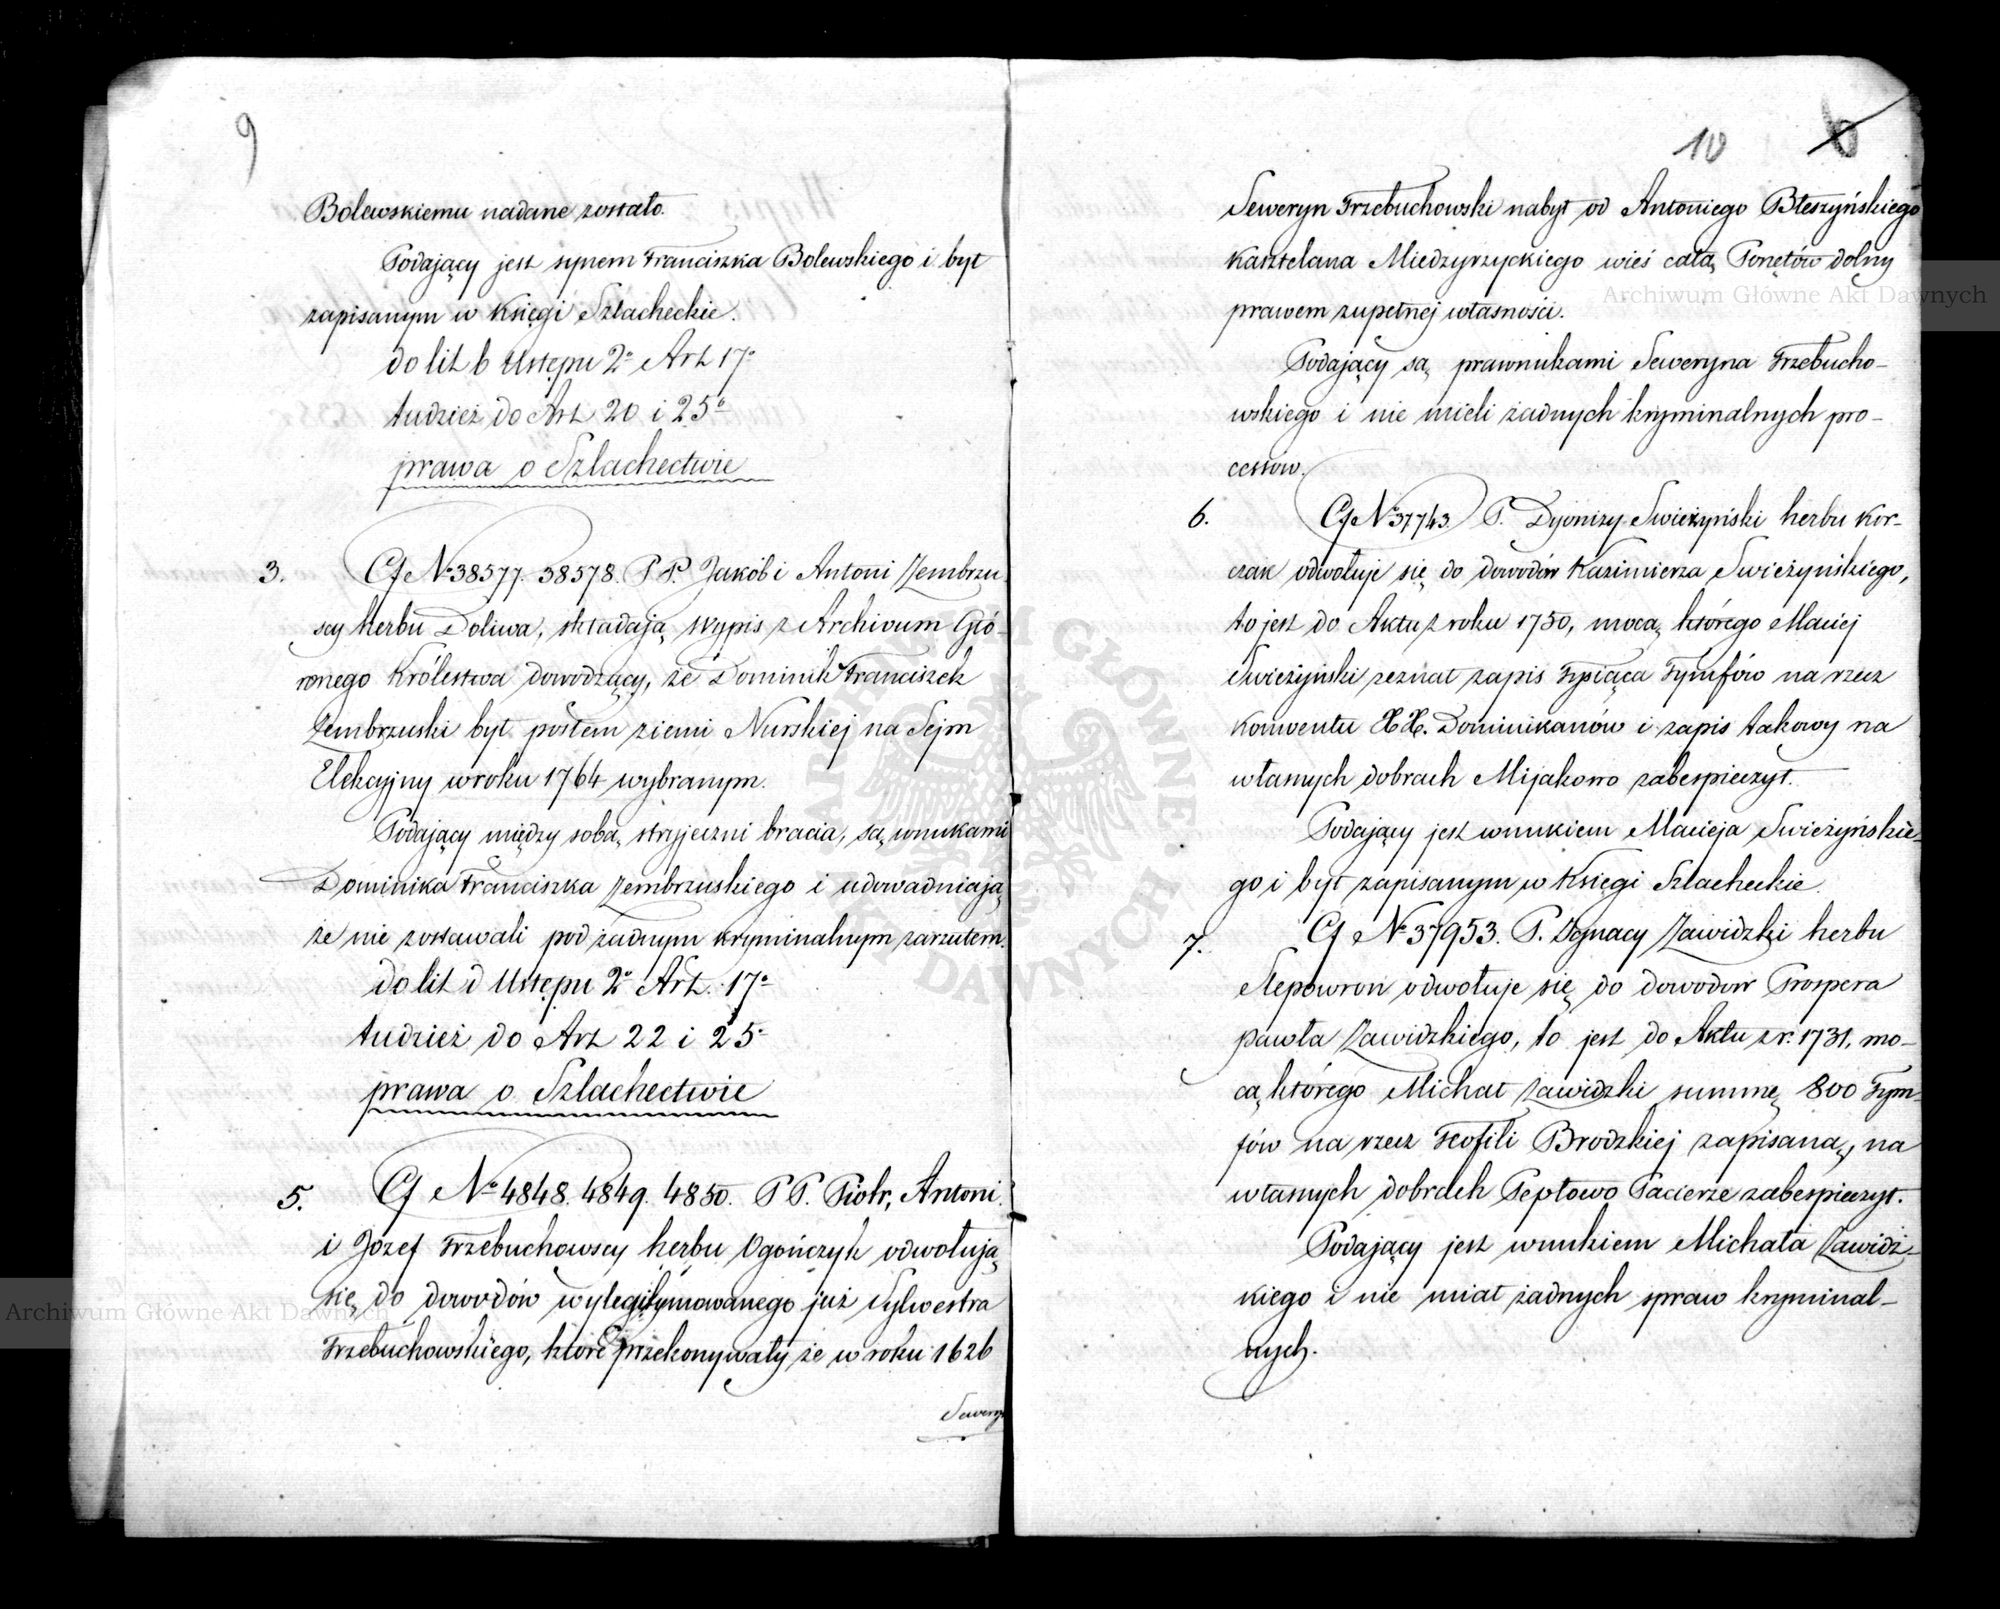 9
Bolewskiemu nadane zostało.
Podający jest synem Franciszka Bolewskiego i był
zapisanym w Księgi Szlacheckie.
do lit b Ustępu 2º Art 17º
tudzież do Art 20 i 25º
prawa o Szlachectwie
3. Cf Nº 38577. 38578. P.P. Jakób i Antoni Zembrzu
scy herbu Doliwa, składają Wypis z Archivum Głó-
wnego Królestwa dowodzący, że Dominik Franciszek
Zembrzuski był posłem ziemi Nurskiej na Sejm
Elekcyjny w roku 1764 wybranym.
Podający między sobą stryjeczni bracia, są wnukami
Dominika Franciszka Zembrzuskiego i udowadniają
że nie zostawali pod żadnym kryminalnym zarzutem.
do lit d Ustępu 2º Art. 17º
tudzież do Art 22 i 25º
prawa o Szlachectwie
5. Cf Nº 4848. 4849. 4850. P P. Piotr, Antoni
i Józef Trzebuchowscy herbu Ogończyk odwołują
się do dowodów wylegitymowanego już Sylwestra
Trzebuchowskiego, które przekonywały że w roku 1626
Seweryn
10
6
Seweryn Trzebuchowski nabył od Antoniego Błeszyńskiego
Kasztelana Miedzyrzyckiego wieś całą Ponętów dolny
prawem zupełnej własności.
Podający są prawnukami Seweryna Trzebucho-
wskiego i nie mieli żadnych kryminalnych pro-
cessow.
6. Cf Nº 37743. P. Dyonizy Swieżyński herbu Kor-
czak odwołuje się do dowodów Kazimierza Swieżyńskiego,
to jest do Aktu z roku 1750, mocą którego Maciej
Swieżyński zeznał zapis Tysiąca Tymfów na rzecz
Konwentu XX. Dominikanów i zapis takowy na
własnych dobrach Mijakowo zabespieczył.
Podający jest wnukiem Macieja Swieżyńskie-
go i był zapisanym w Księgi Szlacheckie.
7. Cf Nº 37953. P. Ignacy Zawidzki herbu
Slepowron odwołuje się do dowodów Prospera
Pawła Zawidzkiego, to jest do Aktu z r. 1731, mo-
cą którego Michał Zawidzki summę 800 Tym-
fów na rzecz Teofili Brodzkiej zapisaną, na
własnych dobrach Pepłowo Pacierze zabespieczył.
Podający jest wnukiem Michała Zawidz-
kiego i nie miał żadnych spraw kryminal-
nych.
ARCHIWUM GŁÓWNE AKT DAWNYCH
Archiwum Główne Akt Dawnych
Archiwum Główne Akt Dawnych